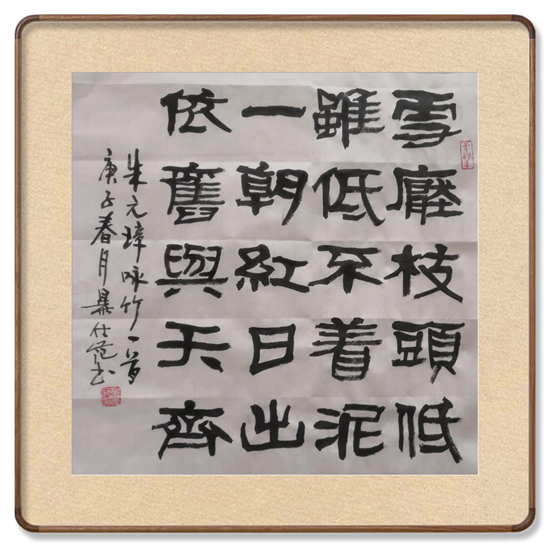 雪壓枝頭低
雖低不着泥
一朝紅日出
依舊與天齊
朱元璋咏竹一首
庚子春月仕范书